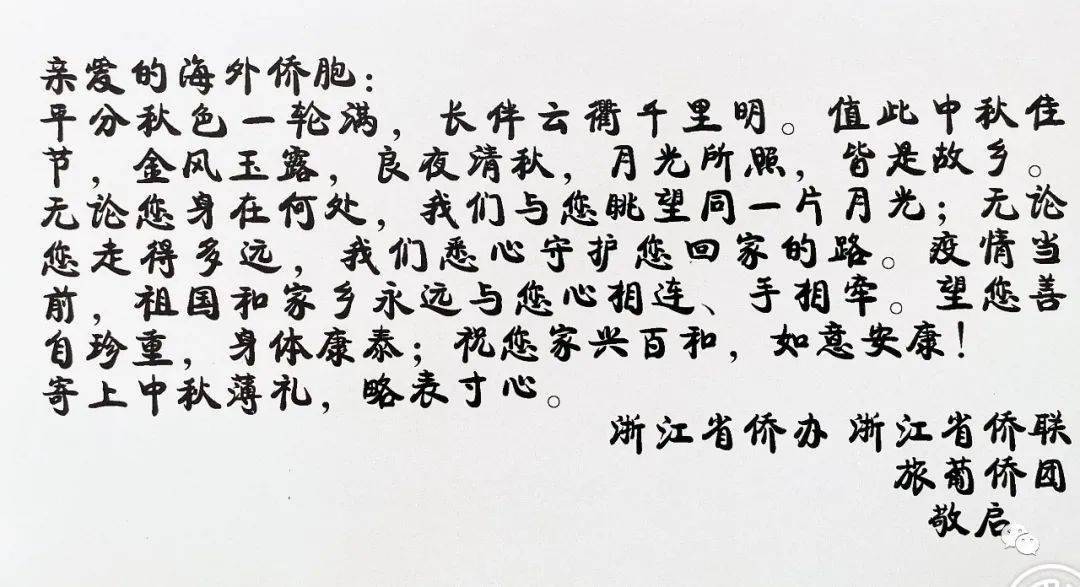 亲爱的海外侨胞：
平分秋色一轮满，长伴云衢千里明。值此中秋佳
节，金风玉露，良夜清秋，月光所照，皆是故乡。
无论您身在何处，我们与您眺望同一片月光；无论
您走得多远，我们悉心守护您回家的路。疫情当
前，祖国和家乡永远与您心相连、手相牵。望您善
自珍重，身体康泰；祝您家兴百和，如意安康！
寄上中秋薄礼，略表寸心。
浙江省侨办 浙江省侨联
旅葡侨团
敬启